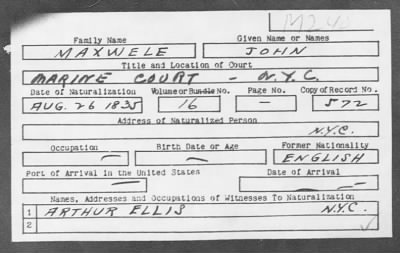 M240
Family Name Given Name or Names
MAXWELE JOHN
Title and Location of Court
MARINE COURT - N.Y.C.
Date of Naturalization Volume or Bundle No. Page No. Copy of Record No.
AUG. 26 1835 16 — 572
Address of Naturalized Person
N.Y.C.
Occupation Birth Date or Age Former Nationality
— — ENGLISH
Port of Arrival in the United States Date of Arrival
— —
Names, Addresses and Occupations of Witnesses To Naturalization
1 ARTHUR ELLIS N.Y.C.
2